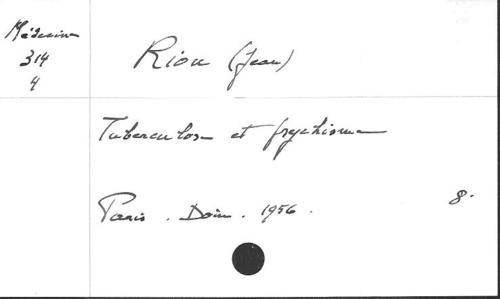 Médecine
314
4
Riou (Jean)
Tuberculose et psychisme
Paris . Doin . 1956 .
8°